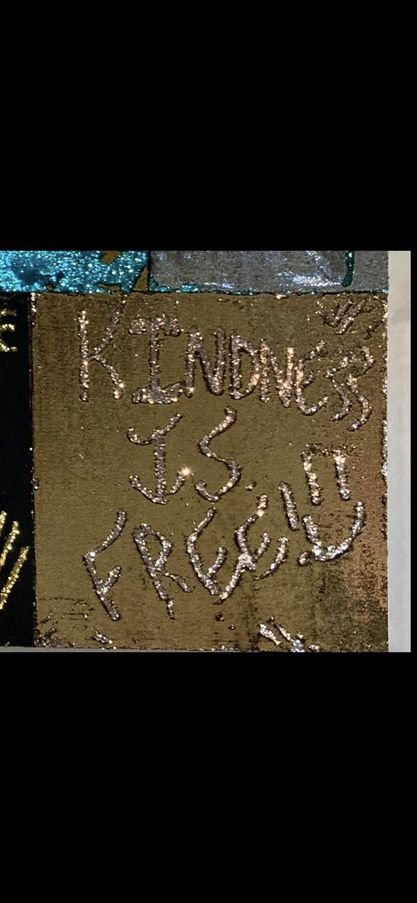 KINDNESS
IS
FREE!